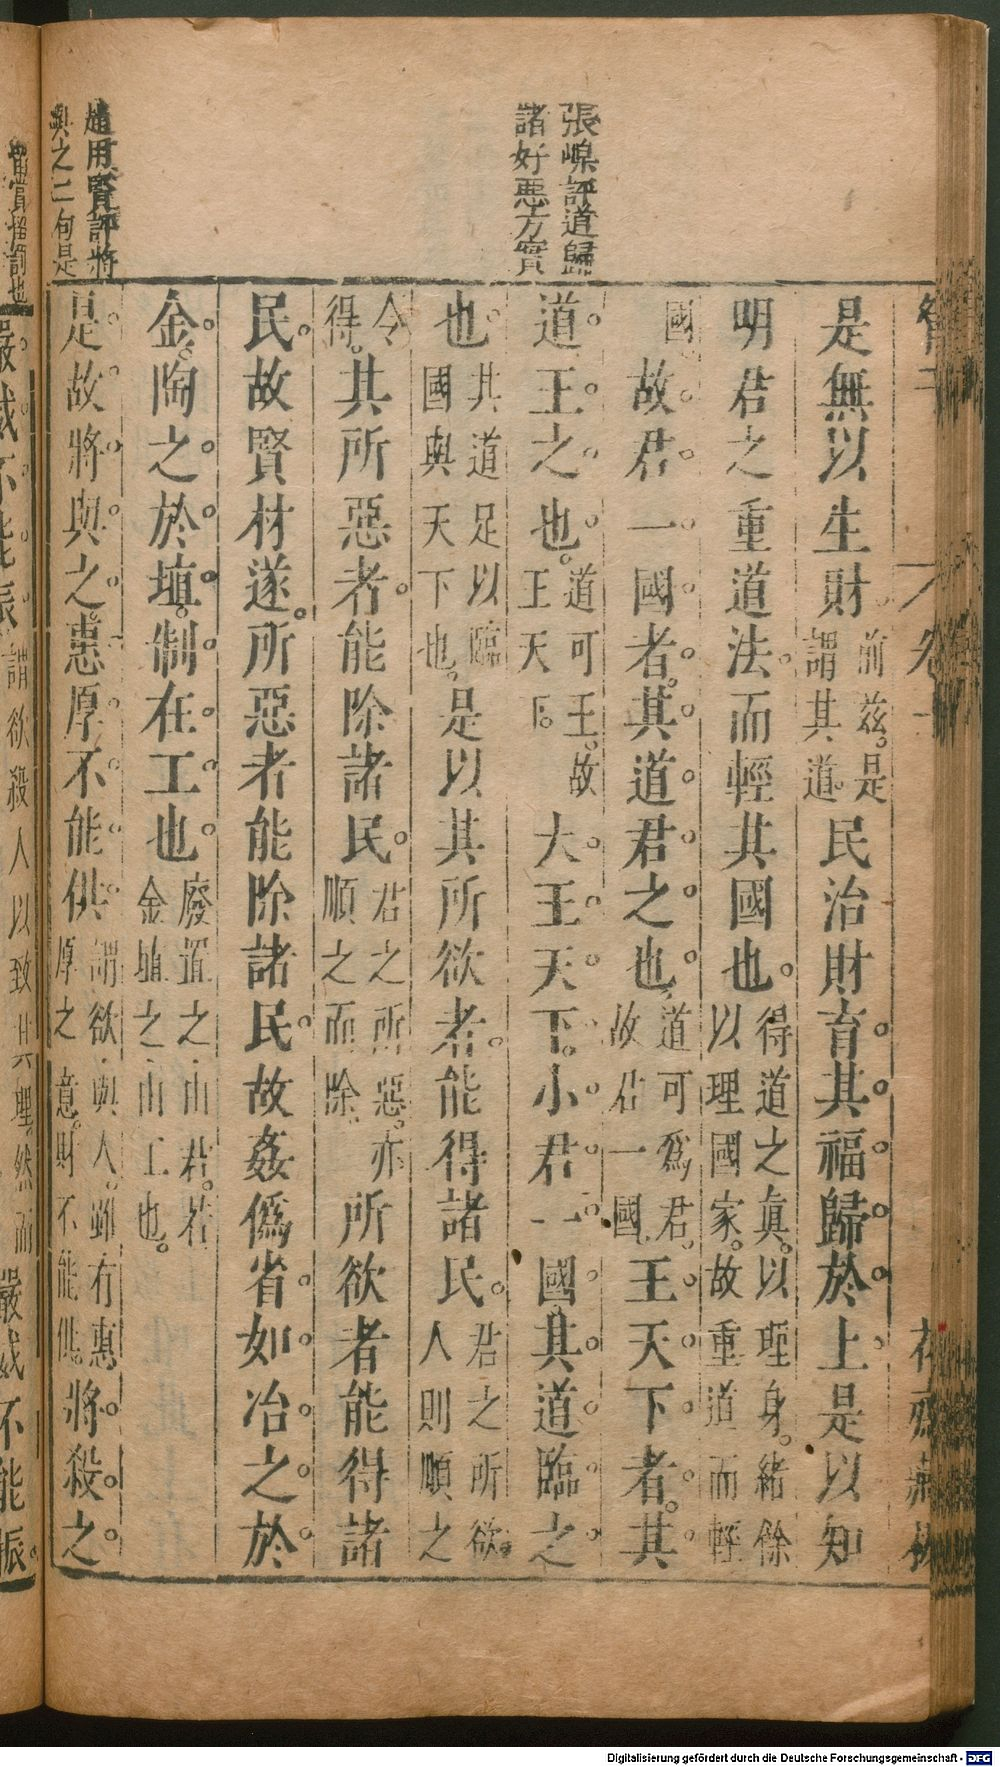 卷
是無以生財前茲是謂其道民治財育其福歸於上是以知
明君之重道法而輕其國也得道之真以理身緒餘以理國家故重道而輕
國故君一國者其道君之也道可爲君故君一國王天下者其
道王之也道可王故王天下大王天下小君一國其道臨之
也其道足以臨國與天下也是以其所欲者能得諸民君之所欲人則順之
今得其所惡者能除諸民君之所惡亦順之而除所欲者能得諸
民故賢材遂所惡者能除諸民故姦僞省如冶之於
金陶之於埴制在工也廢置之由君若金埴之由工也
是故將與之惠厚不能供謂欲與人雖有惠厚之意財不能供將殺之
張嵲評道歸
諸好惡方實
趙用賢評將
與之二句是
嚴威不能振謂欲殺人以致其理然而嚴威不能振
Digitalisierung gefördert durch die Deutsche Forschungsgemeinschaft - DFG